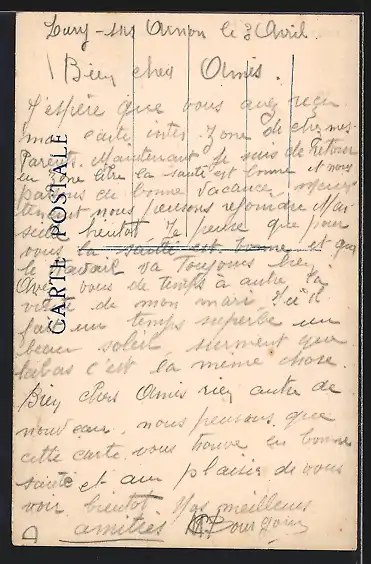 Lury-sur Arnon le 3 Avril.
Bien chers Amis.
J'espère que vous avez reçu
ma carte inter zone de chez mes
Parents. Maintenant je suis de retour
en zone libre la santé est bonne et nous
passons de bonne vacance
nous pensons rejoindre
bientôt Je pense que pour
vous la santé est bonne et que
le travail va toujours bien
Avez vous de temps à autre la
visite de mon mari. Ici il
fait un temps superbe un
beau soleil surement que
labas c'est la même chose.
Bien chers Amis rien autre de
nouveau. nous pensons que
cette carte vous trouve en bonne
santé et au plaisir de vous
voir bientôt Mes meilleurs
amitiés
CARTE POSTALE